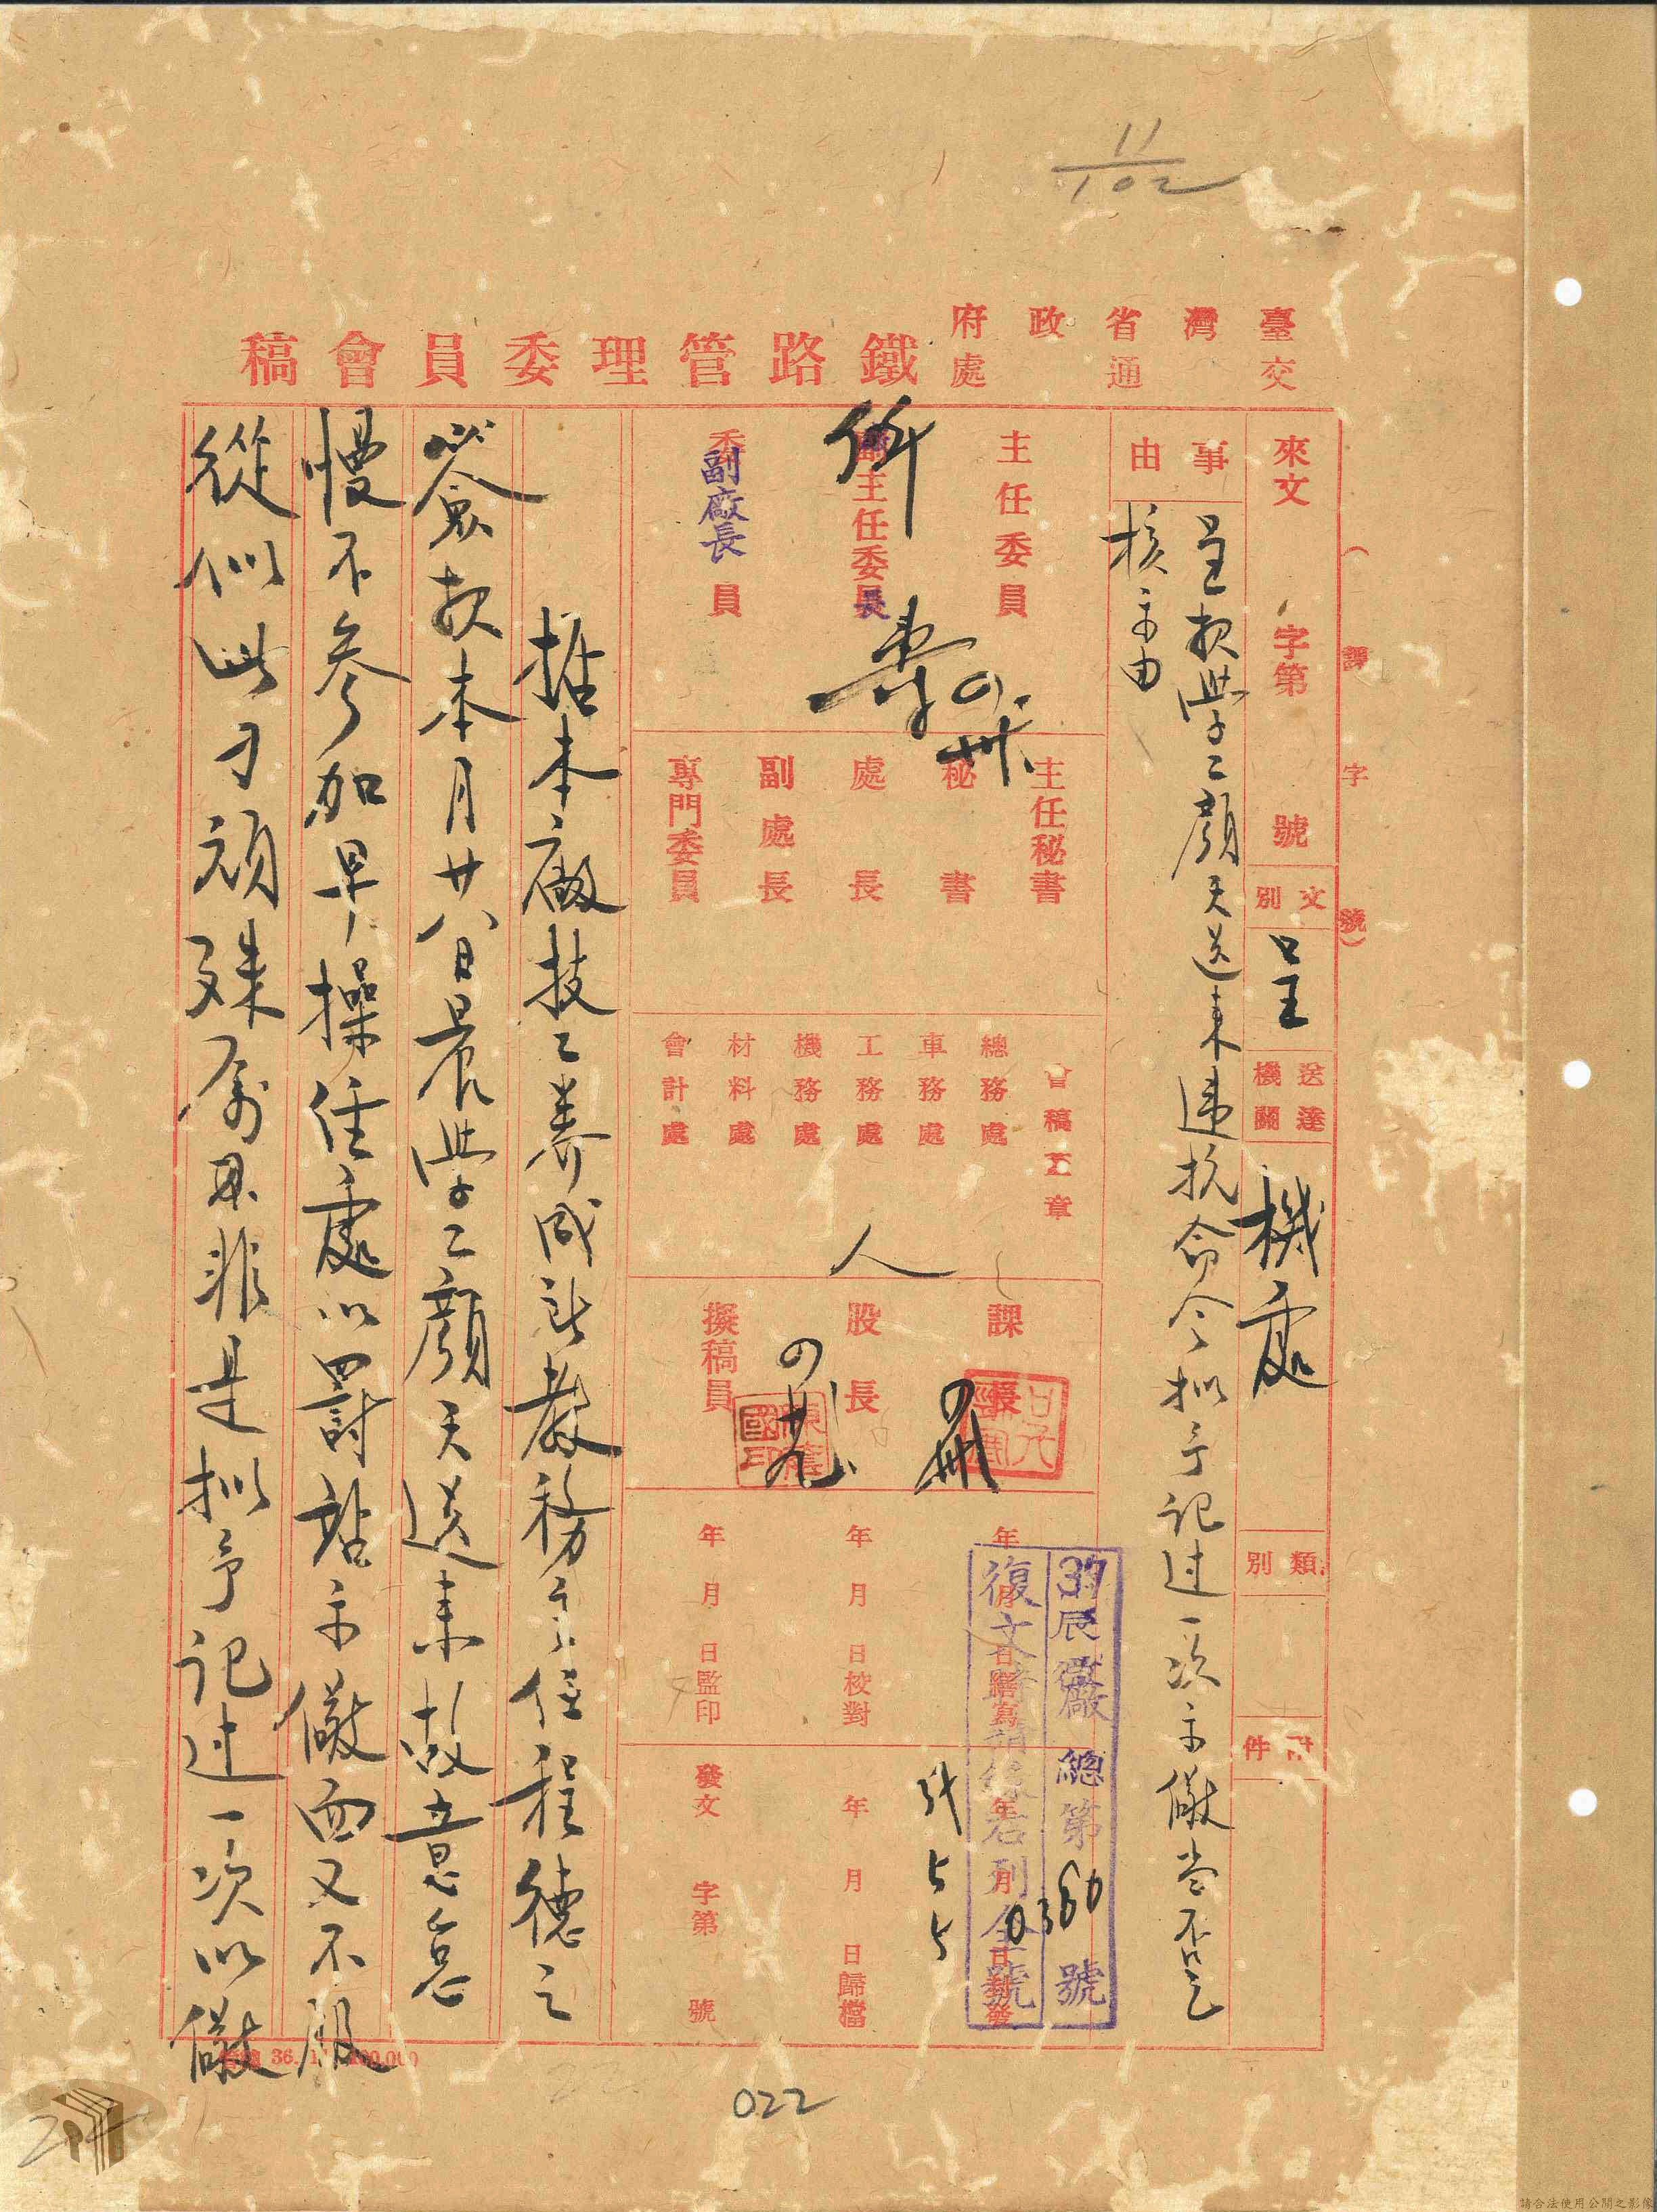 11/102
臺灣省政府
交通處
鐵路管理委員會稿
(課字號)
來文 字第 號
文別 呈
送達機關 機處
類別
附件
事由
呈報學工顏天送來違抗命令擬予記过一次示儆當否乞
核示由
主任委員
副主任委員 長
委員 副廠長
主任秘書
秘書
處長
副處長
專門委員
會稿蓋章
總務處
車務處
工務處
機務處
材料處
會計處
人
課長
股長
擬稿員
年月日繕寫
年月日校對
年月日監印
年月日封發
年月日歸檔
發文 字第 號
37辰 廠總第0360號
復文時請註右列全號
據本廠技工養成所教務主任程德之
簽報本月廿八日晨學工顏天送來故意怠
慢不參加早操任處以罰站示儆而又不服
從似此刁頑殊屬非是擬予记过一次以儆
022
請合法使用公開之影像